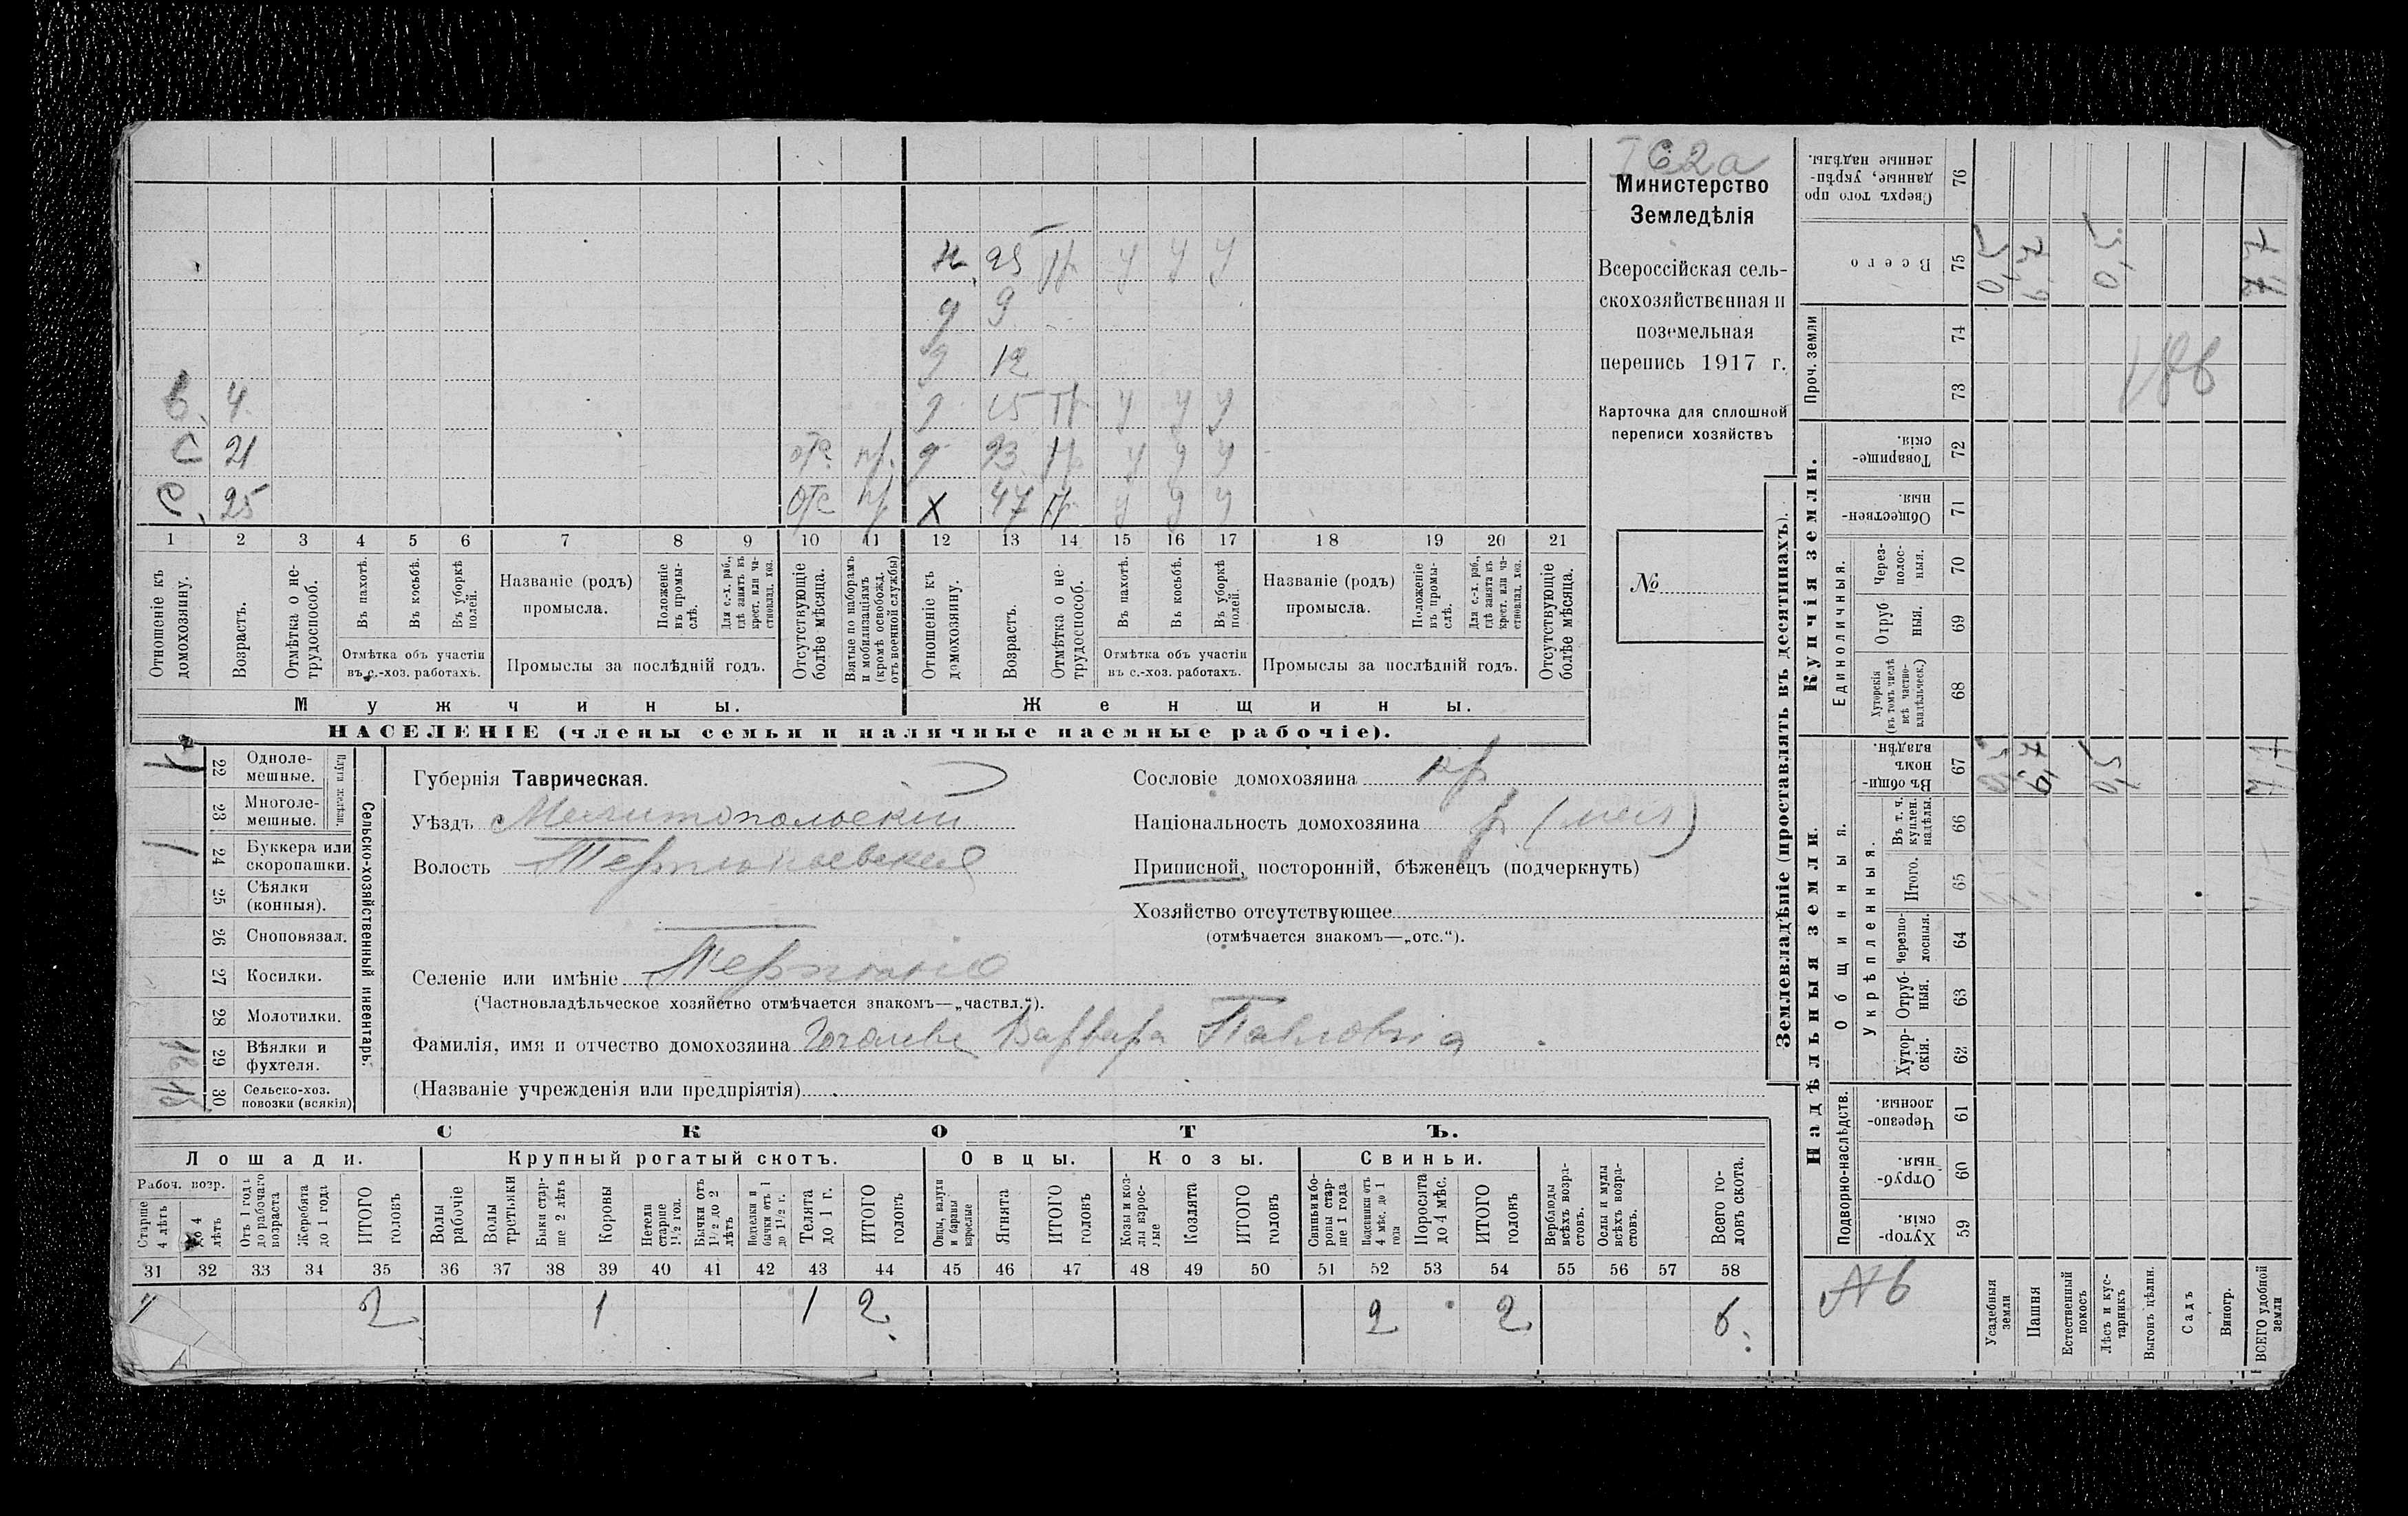 Министерство
Земледѣлія
Всероссійская сель-
скохозяйственная и
поземельная
перепись 1917 г.
Карточка для сплошной
переписи хозяйствъ
№
н. 25 у у у
д 9
д 12
В. 4 д 15 у у у
С 21 отс д 23 у у у
С. 25 отс х 47 у у у
1 2 3 4 5 6 7 8 9 10 11 12 13 14 15 16 17 18 19 20 21
Отношеніе къ домохозяину.
Возрастъ.
Отмѣтка о не-трудоспособ.
Въ пахотѣ.
Въ косьбѣ.
Въ уборкѣ полей.
Отмѣтка объ участіи въ с.-хоз. работахъ.
Названіе (родъ) промысла.
Положеніе въ промы-слѣ.
Для с.-х. раб., гдѣ занятъ въ крест. или ча-стновлад. хоз.
Промыслы за послѣдній годъ.
Отсутствующіе болѣе мѣсяца.
Взятые по наборамъ и мобилизаціямъ (кромѣ освобожд. отъ военной службы)
Отношеніе къ домохозяину.
Возрастъ.
Отмѣтка о не-трудоспособ.
Въ пахотѣ.
Въ косьбѣ.
Въ уборкѣ полей.
Отмѣтка объ участіи въ с.-хоз. работахъ.
Названіе (родъ) промысла.
Положеніе въ промы-слѣ.
Для с.-х. раб., гдѣ занята въ крест. или ча-стновлад. хоз.
Промыслы за послѣдній годъ.
Отсутствующіе болѣе мѣсяца.
Мужчины. Женщины.
НАСЕЛЕНІЕ (члены семьи и наличные наемные рабочіе).
Сельско-хозяйственный инвентарь.
22 Однолемешные.
23 Многолемешные.
24 Буккера или скоропашки.
25 Сѣялки (конныя).
26 Сноповязал.
27 Косилки.
28 Молотилки.
29 Вѣялки и фухтеля.
30 Сельско-хоз. повозки (всякія)
Губернія Таврическая.
Уѣздъ Мелитопольскій
Волость Терпѣньевская
Селеніе или имѣніе Терпѣніе
(Частновладѣльческое хозяйство отмѣчается знакомъ—„частвл.“).
Фамилія, имя и отчество домохозяина Варвара Павловна
(Названіе учрежденія или предпріятія)
Сословіе домохозяина кр
Національность домохозяина
Приписной, посторонній, бѣженецъ (подчеркнуть)
Хозяйство отсутствующее
(отмѣчается знакомъ—„отс.“).
СКОТЪ.
Лошади. Крупный рогатый скотъ. Овцы. Козы. Свиньи.
Рабоч. возр.
Старше 4 лѣтъ
До 4 лѣтъ
Отъ 1 года до рабочаго возраста
Жеребята до 1 года
ИТОГО головъ
Волы рабочіе
Волы третьяки
Быки стар-ше 2 лѣтъ
Коровы
Нетели старше 1½ год.
Бычки отъ 1½ до 2 лѣтъ
Подтелки и бычки отъ 1 до 1½ г.
Телята до 1 г.
ИТОГО головъ
Овцы, валухи и бараны взрослые
Ягнята
ИТОГО головъ
Козы и коз-лы взрос-лые
Козлята
ИТОГО головъ
Свиньи и бо-ровы стар-ше 1 года
Подсвинки отъ 4 мѣс. до 1 года
Поросята до 4 мѣс.
ИТОГО головъ
Верблюды всѣхъ возра-стовъ.
Ослы и мулы всѣхъ возра-стовъ.
Всего го-ловъ скота.
31 32 33 34 35 36 37 38 39 40 41 42 43 44 45 46 47 48 49 50 51 52 53 54 55 56 57 58
2 1 1 2 2 2 6.
Землевладѣніе (проставлять въ десятинахъ).
Надѣльныя земли. Купчія земли. Проч. земли
Подворно-наслѣдств.
Общинныя.
Укрѣпленныя.
Единоличныя.
59 Хутор-скія.
60 Отруб-ныя.
61 Черезпо-лосныя.
62 Хутор-скія.
63 Отруб-ныя.
64 Черезпо-лосныя.
65 Итого.
66 Въ т. ч. куплен. надѣлы.
67 Въ общи-номъ владѣн.
68 Хуторскія (въ томъ числѣ всѣ частно-владѣльческ.)
69 Отруб ныя.
70 Через-полос-ныя.
71 Обществен-ныя.
72 Товарище-скія.
73
74
75 Всего
76 Сверхъ того про данные, укрѣп-ленные надѣлы.
Усадебныя земли
Пашня
Естественный покосъ
Лѣсъ и кус-тарникъ
Выгонъ цѣлин.
Садъ
Виногр.
ВСЕГО удобной земли